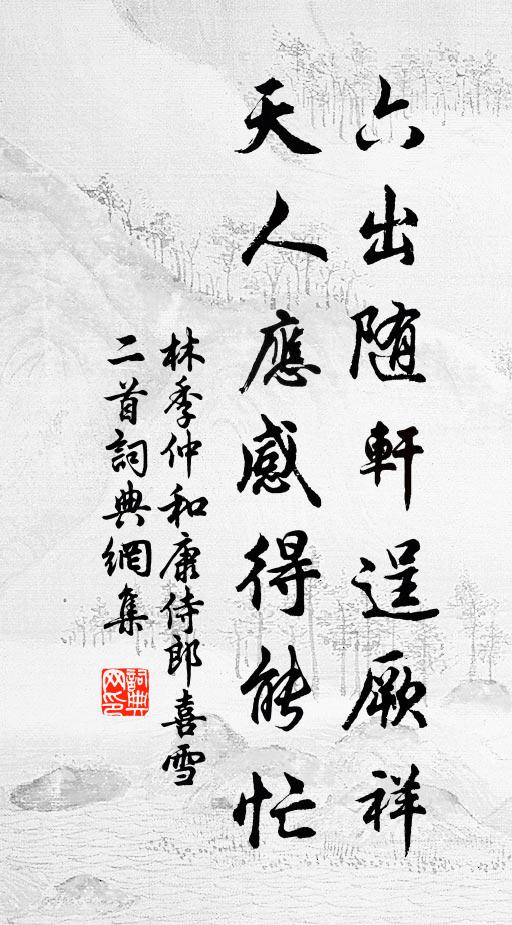 六出随軒逞厥祥
天人應感得能忙
林季仲和康侍郎喜雪
二首詞典網集
詞典网印